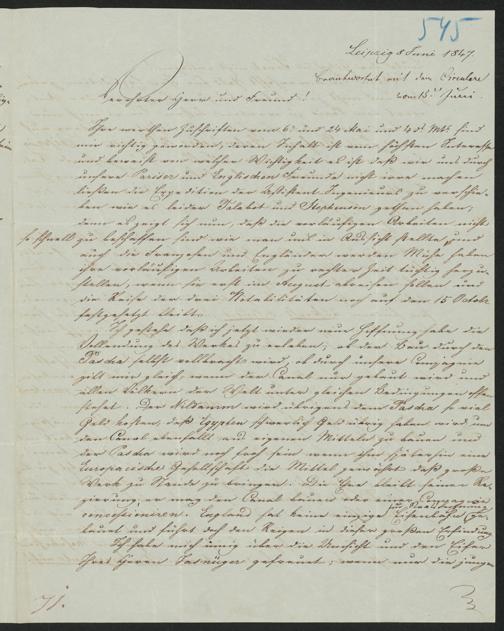 545
Leipzig 8 Juni 1847
beantwortet mit dem Circulare
vom 15 Juni.
Verehrter Herr und Freund!
Ihre werthen Zuschriften vom 6. und 24 Mai und 4 d. Mts. sind
mir richtig geworden, deren Inhalt ist vom höchsten Interesse
und beweist von welcher Wichtigkeit es ist daß wir uns durch
unsere Pariser und Englischen Freunde nicht irre machen
ließen die Expedition der Assistent-Ingenieurs zu verschie-
ben wie es leider Talabot und Stephenson gethan haben,
denn es zeigt sich nun, daß die vorläufigen Arbeiten nicht
so schnell zu beschaffen sind wie man uns in Aussicht stellte, und
auch die Franzosen und Engländer werden Mühe haben
ihre vorläufigen Arbeiten zu rechter Zeit tüchtig herzu-
stellen, wenn sie erst im August abreisen sollen und
die Reise der drei Notabilitäten noch auf den 15 Octobr
festgesetzt bleibt.
Ich gestehe daß ich jetzt wieder neue Hoffnung habe die
Vollendung des Werkes zu erleben; ob der Bau durch den
Pascha selbst vollbracht wird, ob durch unsere Compagnie
gilt mir gleich, wenn der Canal nur gebaut wird und
allen Völkern der Welt unter gleichen Bedingungen offen
steht. Der Nildamm wird übrigens dem Pascha so viel
Geld kosten, daß Egypten schwerlich Geld übrig haben wird um
den Canal ebenfalls aus eigenen Mitteln zu bauen und
der Pascha wird noch froh sein wenn ihm späterhin eine
Europäische Gesellschaft die Mittel gewährt das große
Werk zu Stande zu bringen. Die Ehre bleibt seiner Re-
gierung, er mag den Canal bauen oder einer Compagnie
concessioniren. England hat keine einzige Eisenbahn
gebaut und führt doch den Reigen in dieser großen Erfindung
Ich habe mich innig über die Umsicht und den Eifer
Ihres Herrn Negrelli gefreut; wenn nur die junge
71.